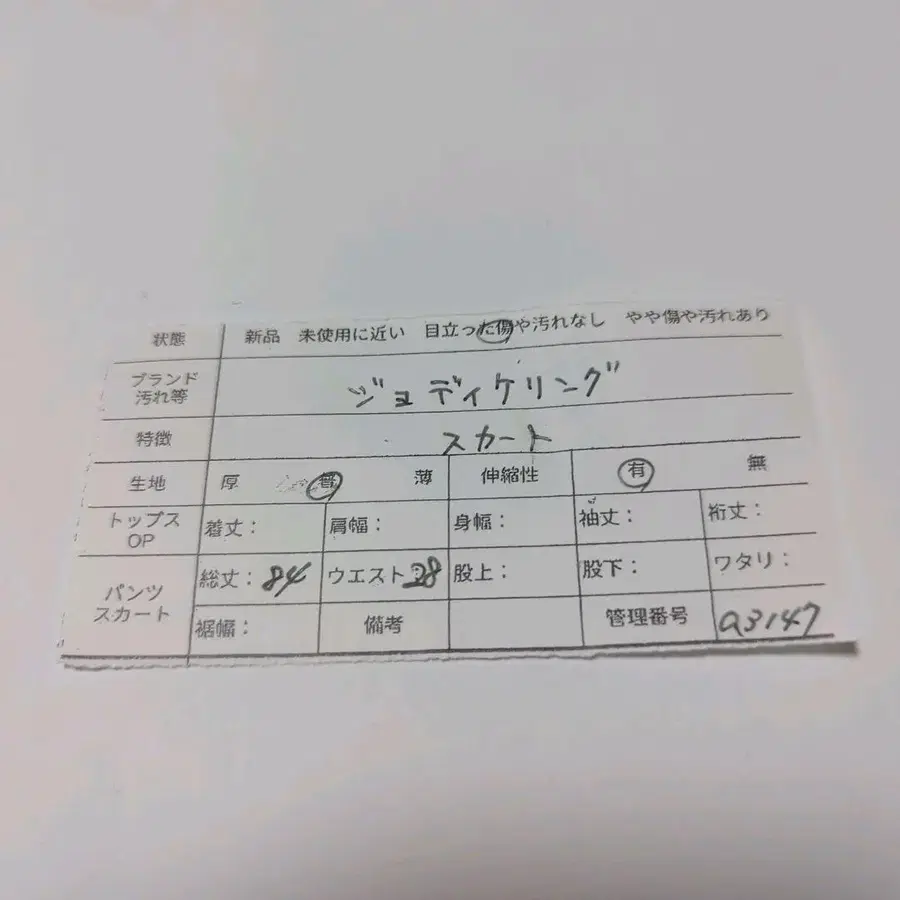 状態 新品 未使用に近い 目立った傷や汚れなし やや傷や汚れあり
ブランド 汚れ等 ジョディケリング
特徴 スカート
生地 厚 普 薄 伸縮性 有 無
トップス OP 着丈： 肩幅： 身幅： 袖丈： 裄丈：
パンツ スカート 総丈：84 ウエスト28 股上： 股下： ワタリ：
裾幅： 備考 管理番号 a3147